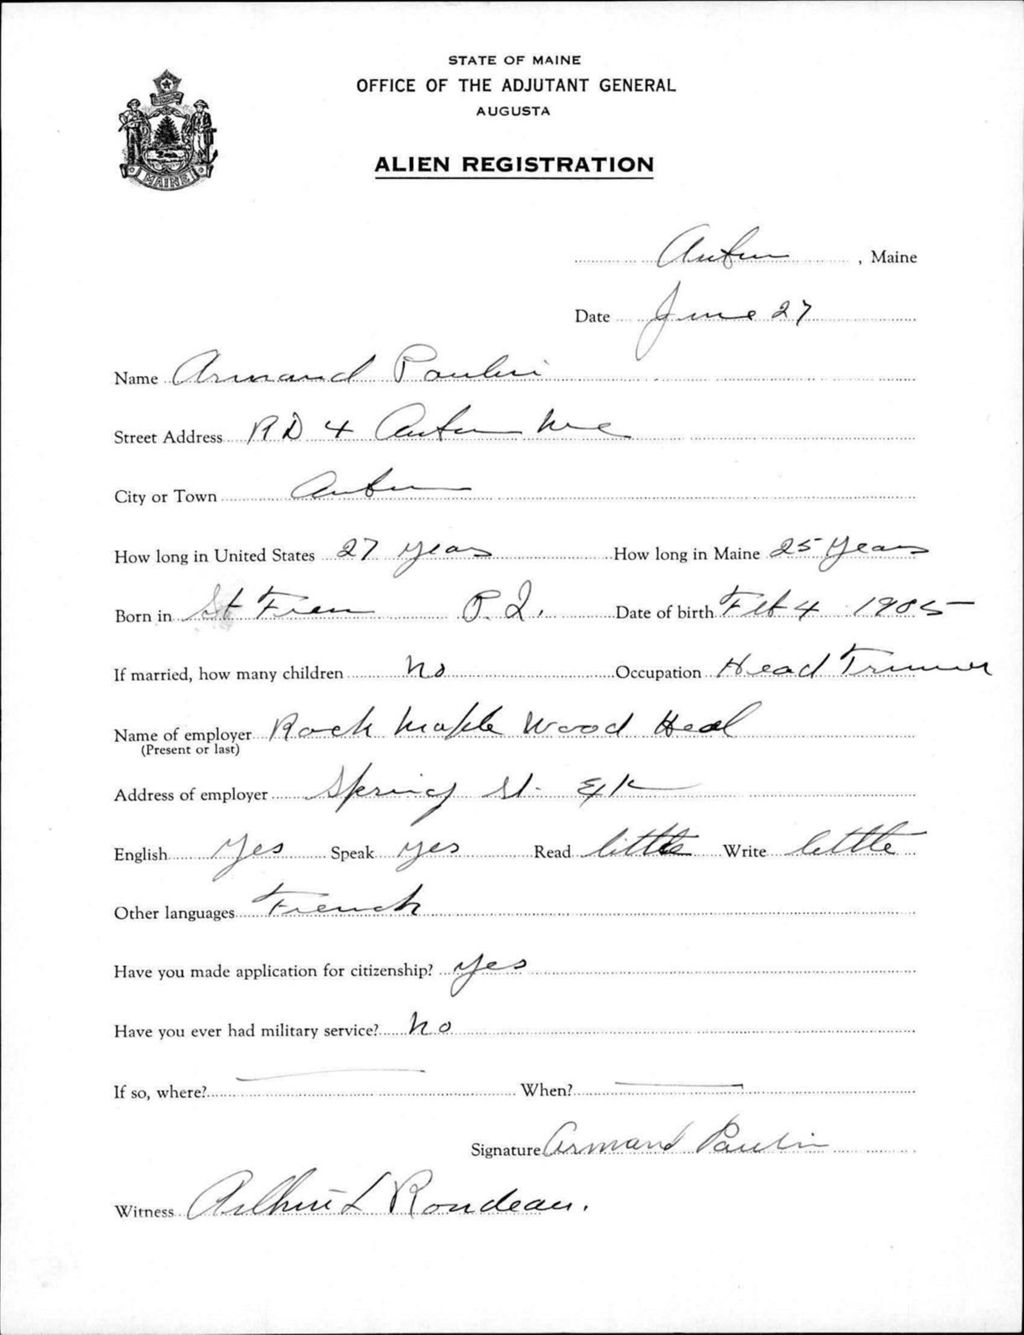 STATE OF MAINE
OFFICE OF THE ADJUTANT GENERAL
AUGUSTA
MAINE
ALIEN REGISTRATION
Auburn, Maine
Date June 27
Name Armand Paulin
Street Address RD 4 Auburn Me
City or Town Auburn
How long in United States 27 years How long in Maine 25 years
Born in St P.Q. Date of birth Feb 4 1905
If married, how many children No Occupation Head Trimmer
Name of employer Rock Maple Wood Heel
(Present or last)
Address of employer Spring St.
English yes Speak yes Read little Write little
Other languages French
Have you made application for citizenship? yes
Have you ever had military service? No
If so, where? When?
Signature Armand Paulin
Witness L Rondeau.